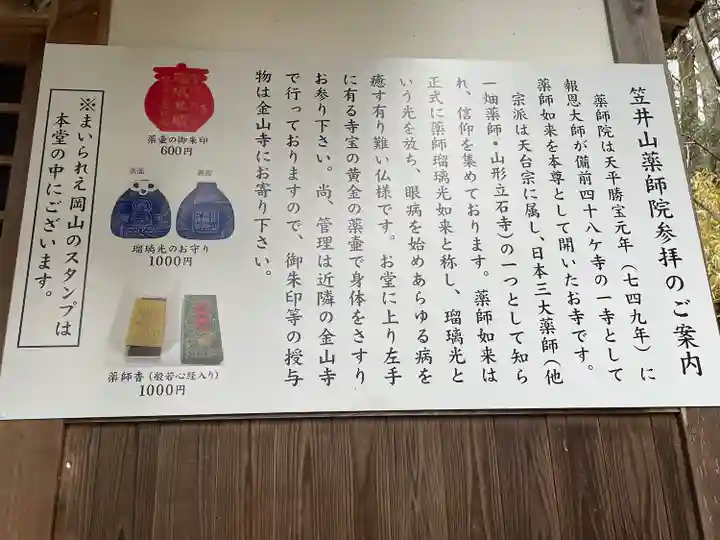 笠井山薬師院参拝のご案内
薬師院は天平勝宝元年（七四九年）に
報恩大師が備前四十八ヶ寺の一寺として
薬師如来を本尊として開いたお寺です。
宗派は天台宗に属し、日本三大薬師（他
一畑薬師・山形立石寺）の一つとして知ら
れ、信仰を集めております。薬師如来は
正式に薬師瑠璃光如来と称し、瑠璃光と
いう光を放ち、眼病を始めあらゆる病を
癒す有り難い仏様です。お堂に上り左手
に有る寺宝の黄金の薬壷で身体をさすり
お参り下さい。尚、管理は近隣の金山寺
で行っておりますので、御朱印等の授与
物は金山寺にお寄り下さい。
薬壷の御朱印
600円
表面
裏面
瑠璃光のお守り
1000円
薬師香（般若心経入り）
1000円
※まいられえ岡山のスタンプは
本堂の中にございます。